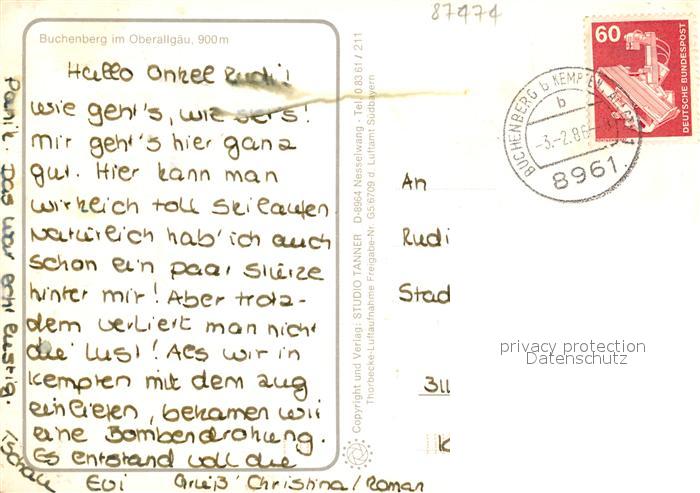 87474
Buchenberg im Oberallgäu, 900m
Hallo Onkel Rudi!
Wie geht's, wie
Mir geht's hier ganz
gut. Hier kann man
wirklich toll Skilaufen
Natürlich hab' ich auch
schon ein paar Stürze
hinter mir! Aber trotz-
dem verliert man nicht
die Lust! Als wir in
Kempten mit dem Zug
einliefen, bekamen wir
eine Bombendrohung.
Es entstand voll die
Panik. Das war echt lustig.
Tschau
Evi Grüß' Christina/Roman
Copyright und Verlag: STUDIO TANNER D-8964 Nesselwang - Tel. 0 83 61 / 211
Thorbecke-Luftaufnahme Freigabe-Nr. G5/6709 d. Luftamt Südbayern
60
DEUTSCHE BUNDESPOST
BUCHENBERG b KEMPTEN
b
-3.-2.86
8961
An
Rudi
Stad
311
privacy protection
Datenschutz